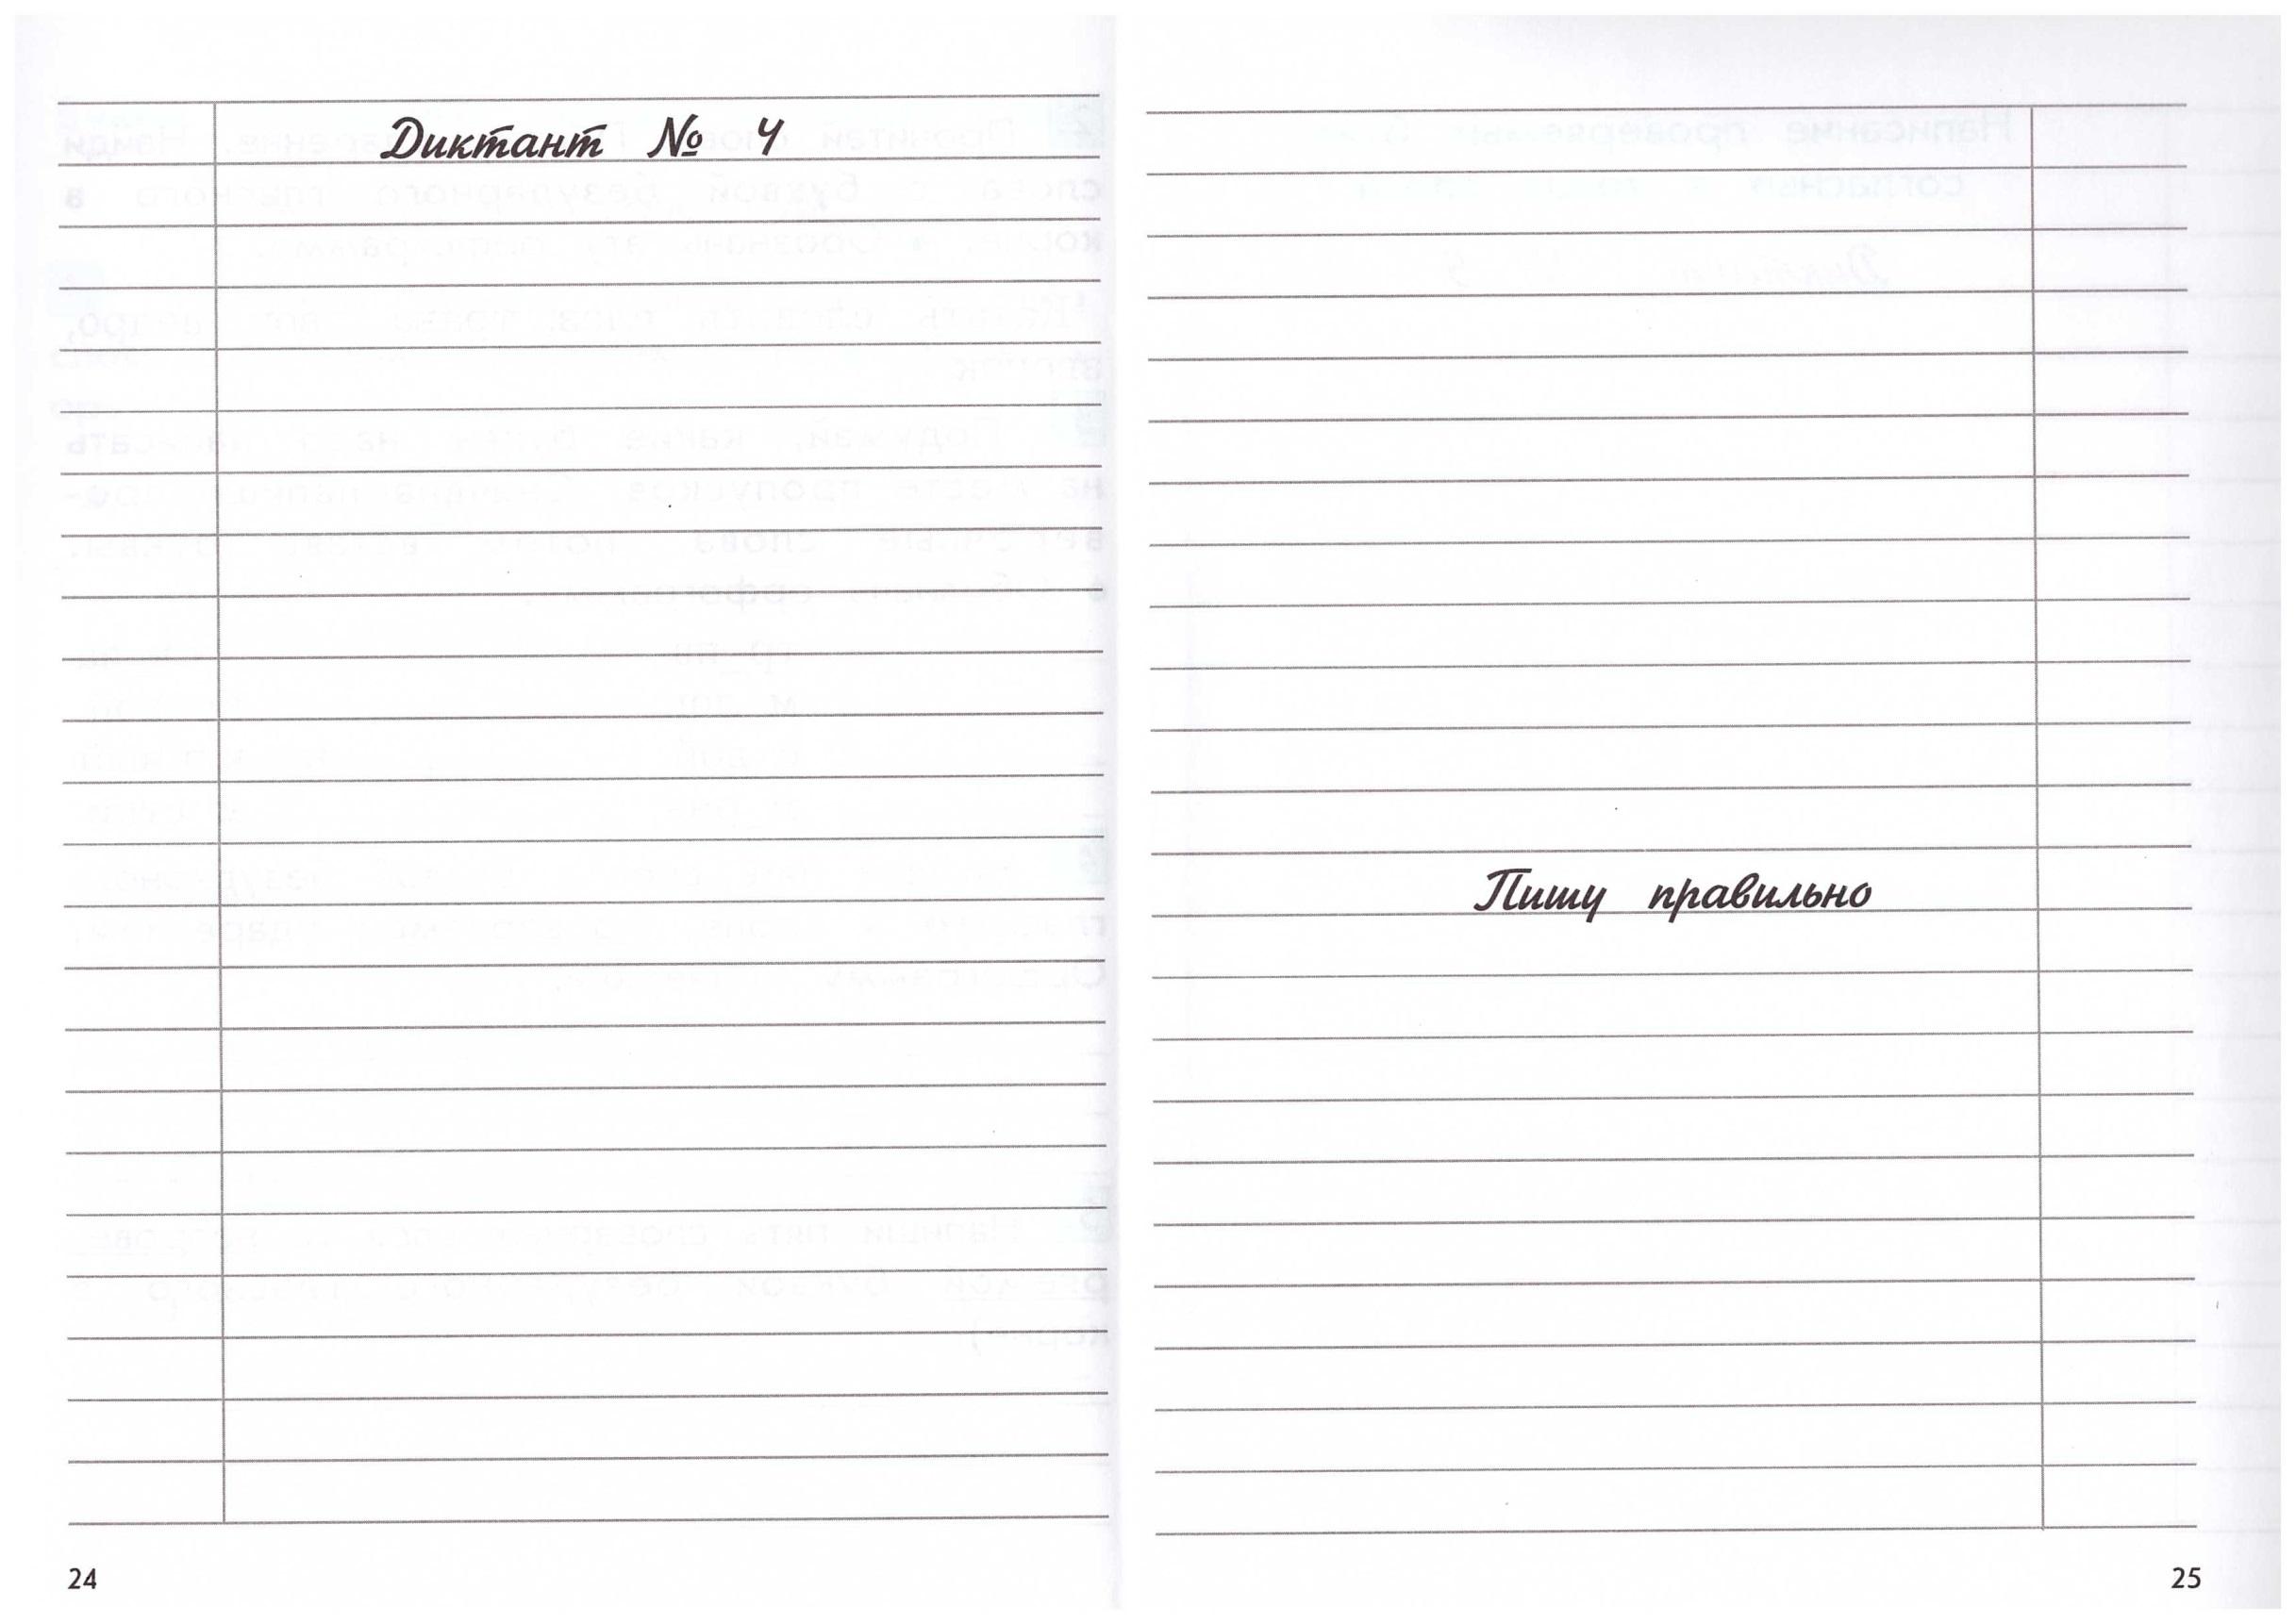 Диктант № 4
24
Пишу правильно
25